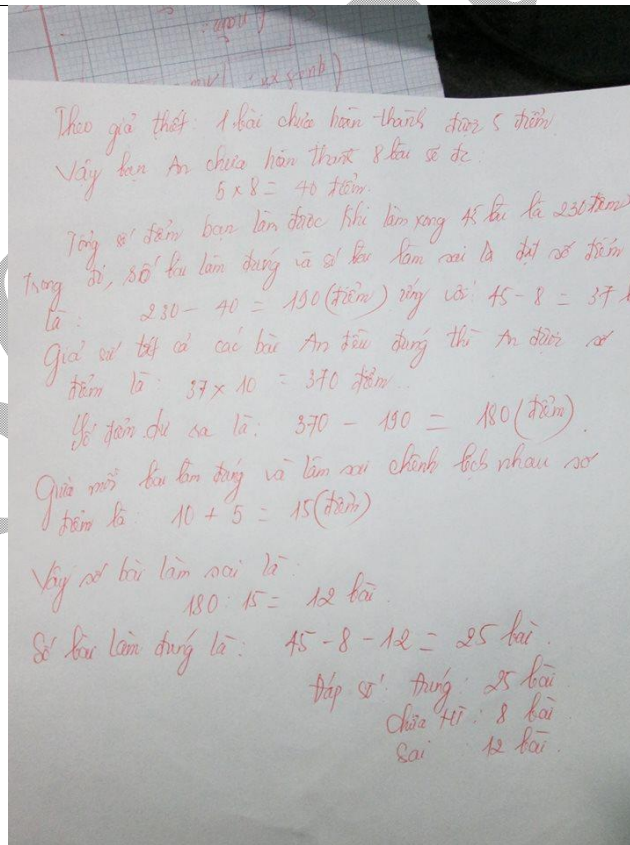 Theo giả thiết: 1 bài chưa hoàn thành được 5 điểm
Vậy bạn An chưa hoàn thành 8 bài sẽ đc:
5 x 8 = 40 điểm.
Tổng số điểm bạn làm được khi làm xong 45 bài là 230 điểm
Trong đó, số bài làm đúng và số bài làm sai là đạt số điểm
là: 230 - 40 = 190 (điểm) ứng với: 45 - 8 = 37 b
Giả sử tất cả các bài An đều đúng thì An được số
điểm là: 37 x 10 = 370 điểm.
Số điểm dư ra là: 370 - 190 = 180 (điểm).
Giữa mỗi bài làm đúng và làm sai chênh lệch nhau số
điểm là: 10 + 5 = 15 (điểm)
Vậy số bài làm sai là:
180 : 15 = 12 bài
Số bài làm đúng là: 45 - 8 - 12 = 25 bài.
Đáp số: Đúng: 25 bài
Chưa HT: 8 bài
Sai 12 bài.